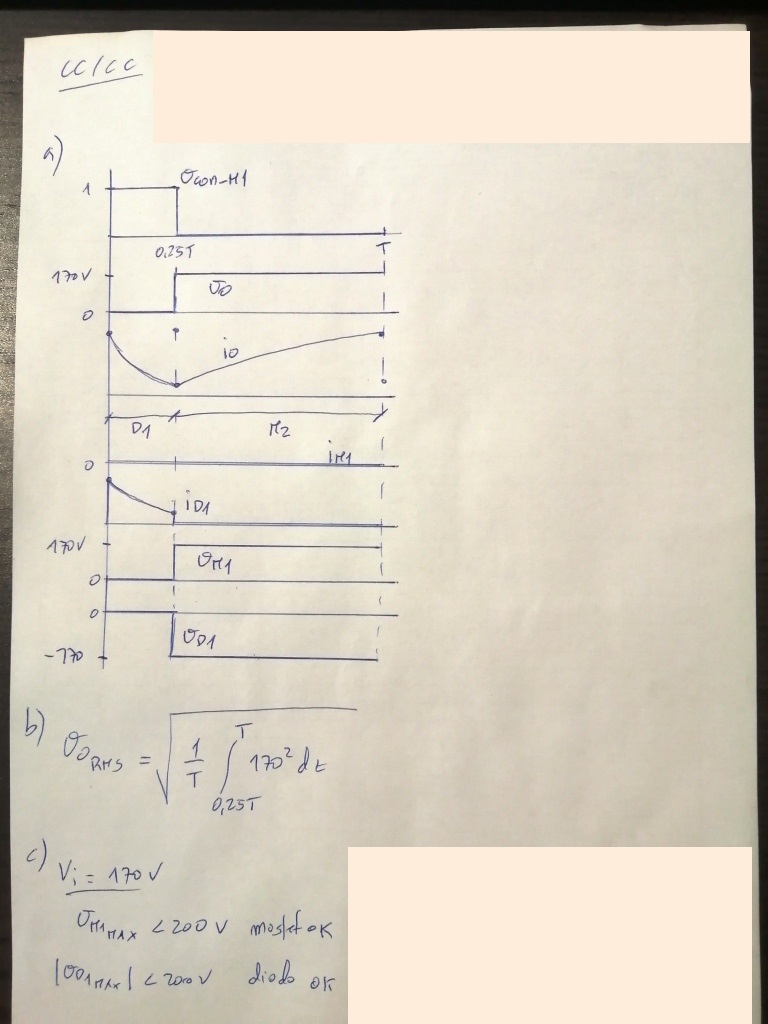 CC/CC
a)
1
vcon-M1
0,25T
T
170V
vo
0
io
D1
M2
iM1
0
iD1
170V
vM1
0
0
vD1
-170
b) vo RMS = √ 1/T ∫ 0,25T T 170² dt
c) Vi = 170 V
vM1MAX < 200 V mosfet OK
|vD1MAX| < 200 V diodo OK